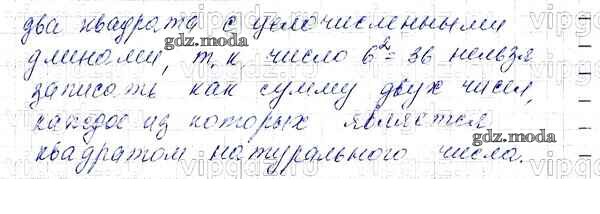 два квадрата с целочисленными
длинами, т. к. число 6² = 36 нельзя
записать как сумму двух чисел,
каждое из которых является
квадратом натурального числа.
gdz.moda
gdz.moda
gdz.moda
gdz.moda